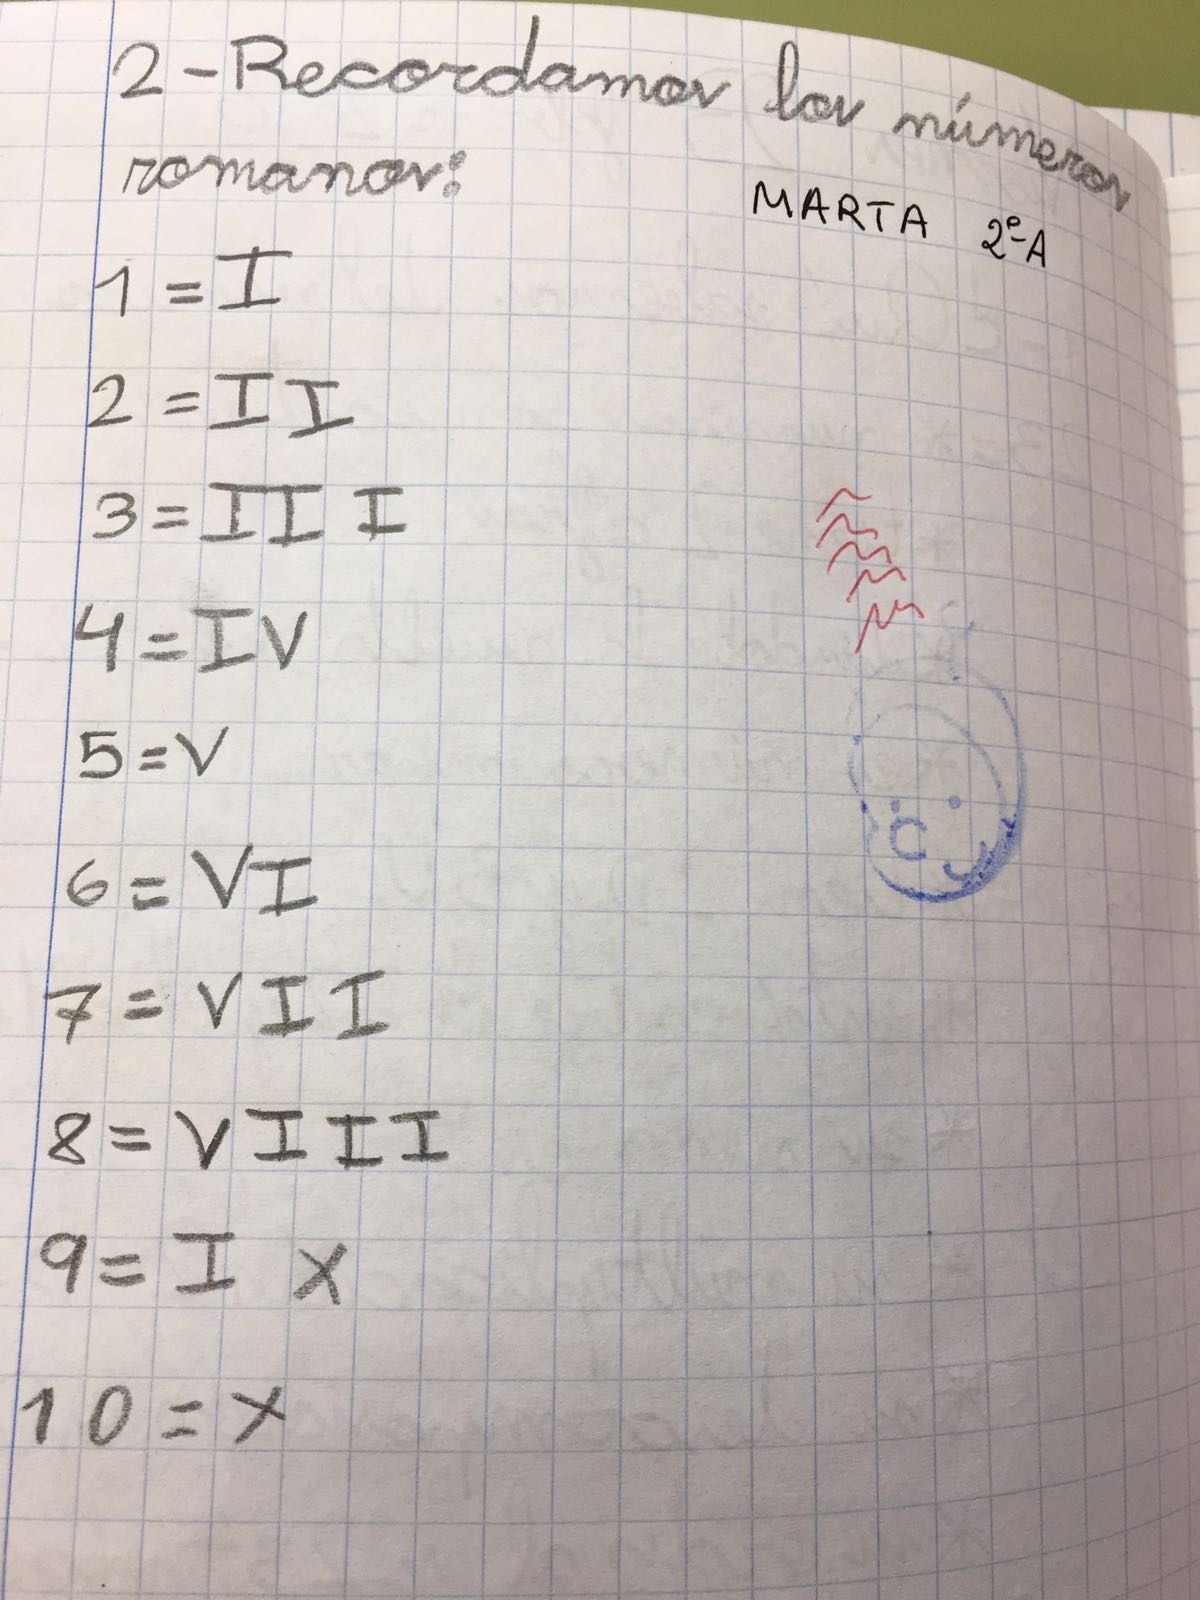 2-Recordamos los números
romanos:
MARTA 2º-A
1 = I
2 = II
3 = III
4 = IV
5 = V
6 = VI
7 = VII
8 = VIII
9 = IX
10 = X